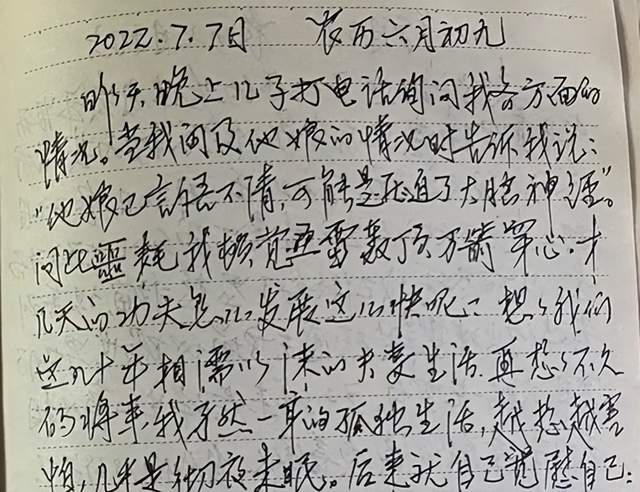 2022.7.7日 农历六月初九
昨天晚上儿子打电话询问我各方面的
情况。当我问及他娘的情况时告诉我说：
“他娘已言语不清，可能是压迫了大脑神经”。
闻此噩耗我顿觉五雷轰顶万箭穿心．才
几天的功夫怎么发展这么快呢？想想我们
这几十年相濡以沫的夫妻生活，再想想不久
的将来，我孑然一身的孤独生活，越想越害
怕，几乎是彻夜未眠。后来就自己宽慰自己：